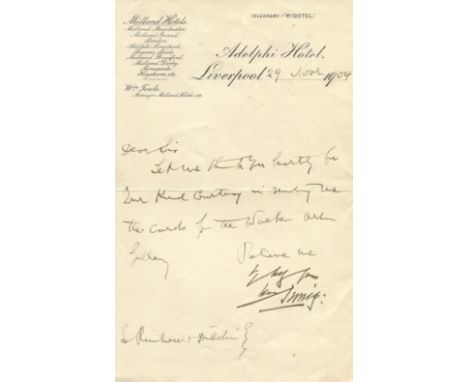 Midland Hotels.
Midland, Manchester.
Midland Grand,
London.
Adelphi, Liverpool.
Queens, Leeds.
Midland, Bradford.
Midland, Derby.
Morecambe.
Heysham, etc.
Wm Towle,
Manager Midland Hotels, etc.
TELEGRAMS "MIDOTEL"
Adelphi Hotel,
Liverpool 29 Novr 1904
Dear Sir
Let me thank you heartily for
Your Kind Courtesy in sending me
the cards for the Walker Art
Gallery
Believe me